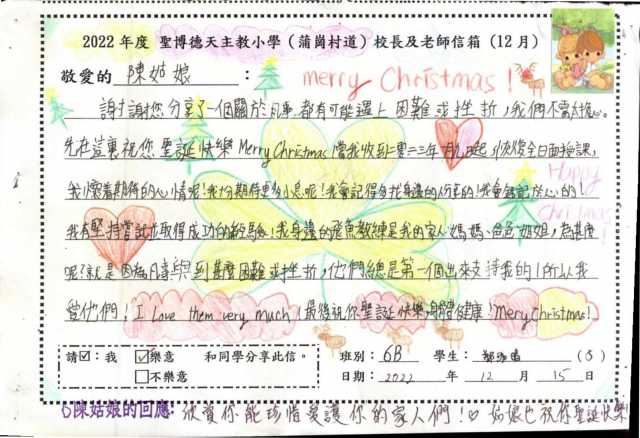 2022 年度 聖博德天主教小學（蒲崗村道）校長及老師信箱（12 月）
敬愛的 陳姑娘 ：
merry Christmas!
謝謝您分享了一個關於凡事都有可能遇上困難或挫折，我們不需大擔心。
先在這裏祝您聖誕快樂 Merry Christmas!當我收到二零二三年 起，恢復全日面授課，
Happy Christmas!
我懷着期待的心情呢!我十分期待更多小息呢!我會記得 找身邊的 !我會 記 於心的!
我有堅持嘗試並取得成功的經驗!我身邊的飛魚教練是我的家人:媽媽、爸爸、姐姐，為甚麼
呢?就是因為凡事 到甚麼困難或挫折，他們總是第一個出來支持我的!所以我
愛他們! I love them very much!最後祝你聖誕快樂,身體健康! Merry Christmas!
請☑：我 ☑樂意 和同學分享此信。
□不樂意
班別： 6B 學生： (8)
日期： 2022 年 12 月 15 日
陳姑娘的回應: 欣賞你能珍惜愛護你的家人們!♡ 姑娘也祝你聖誕快樂!